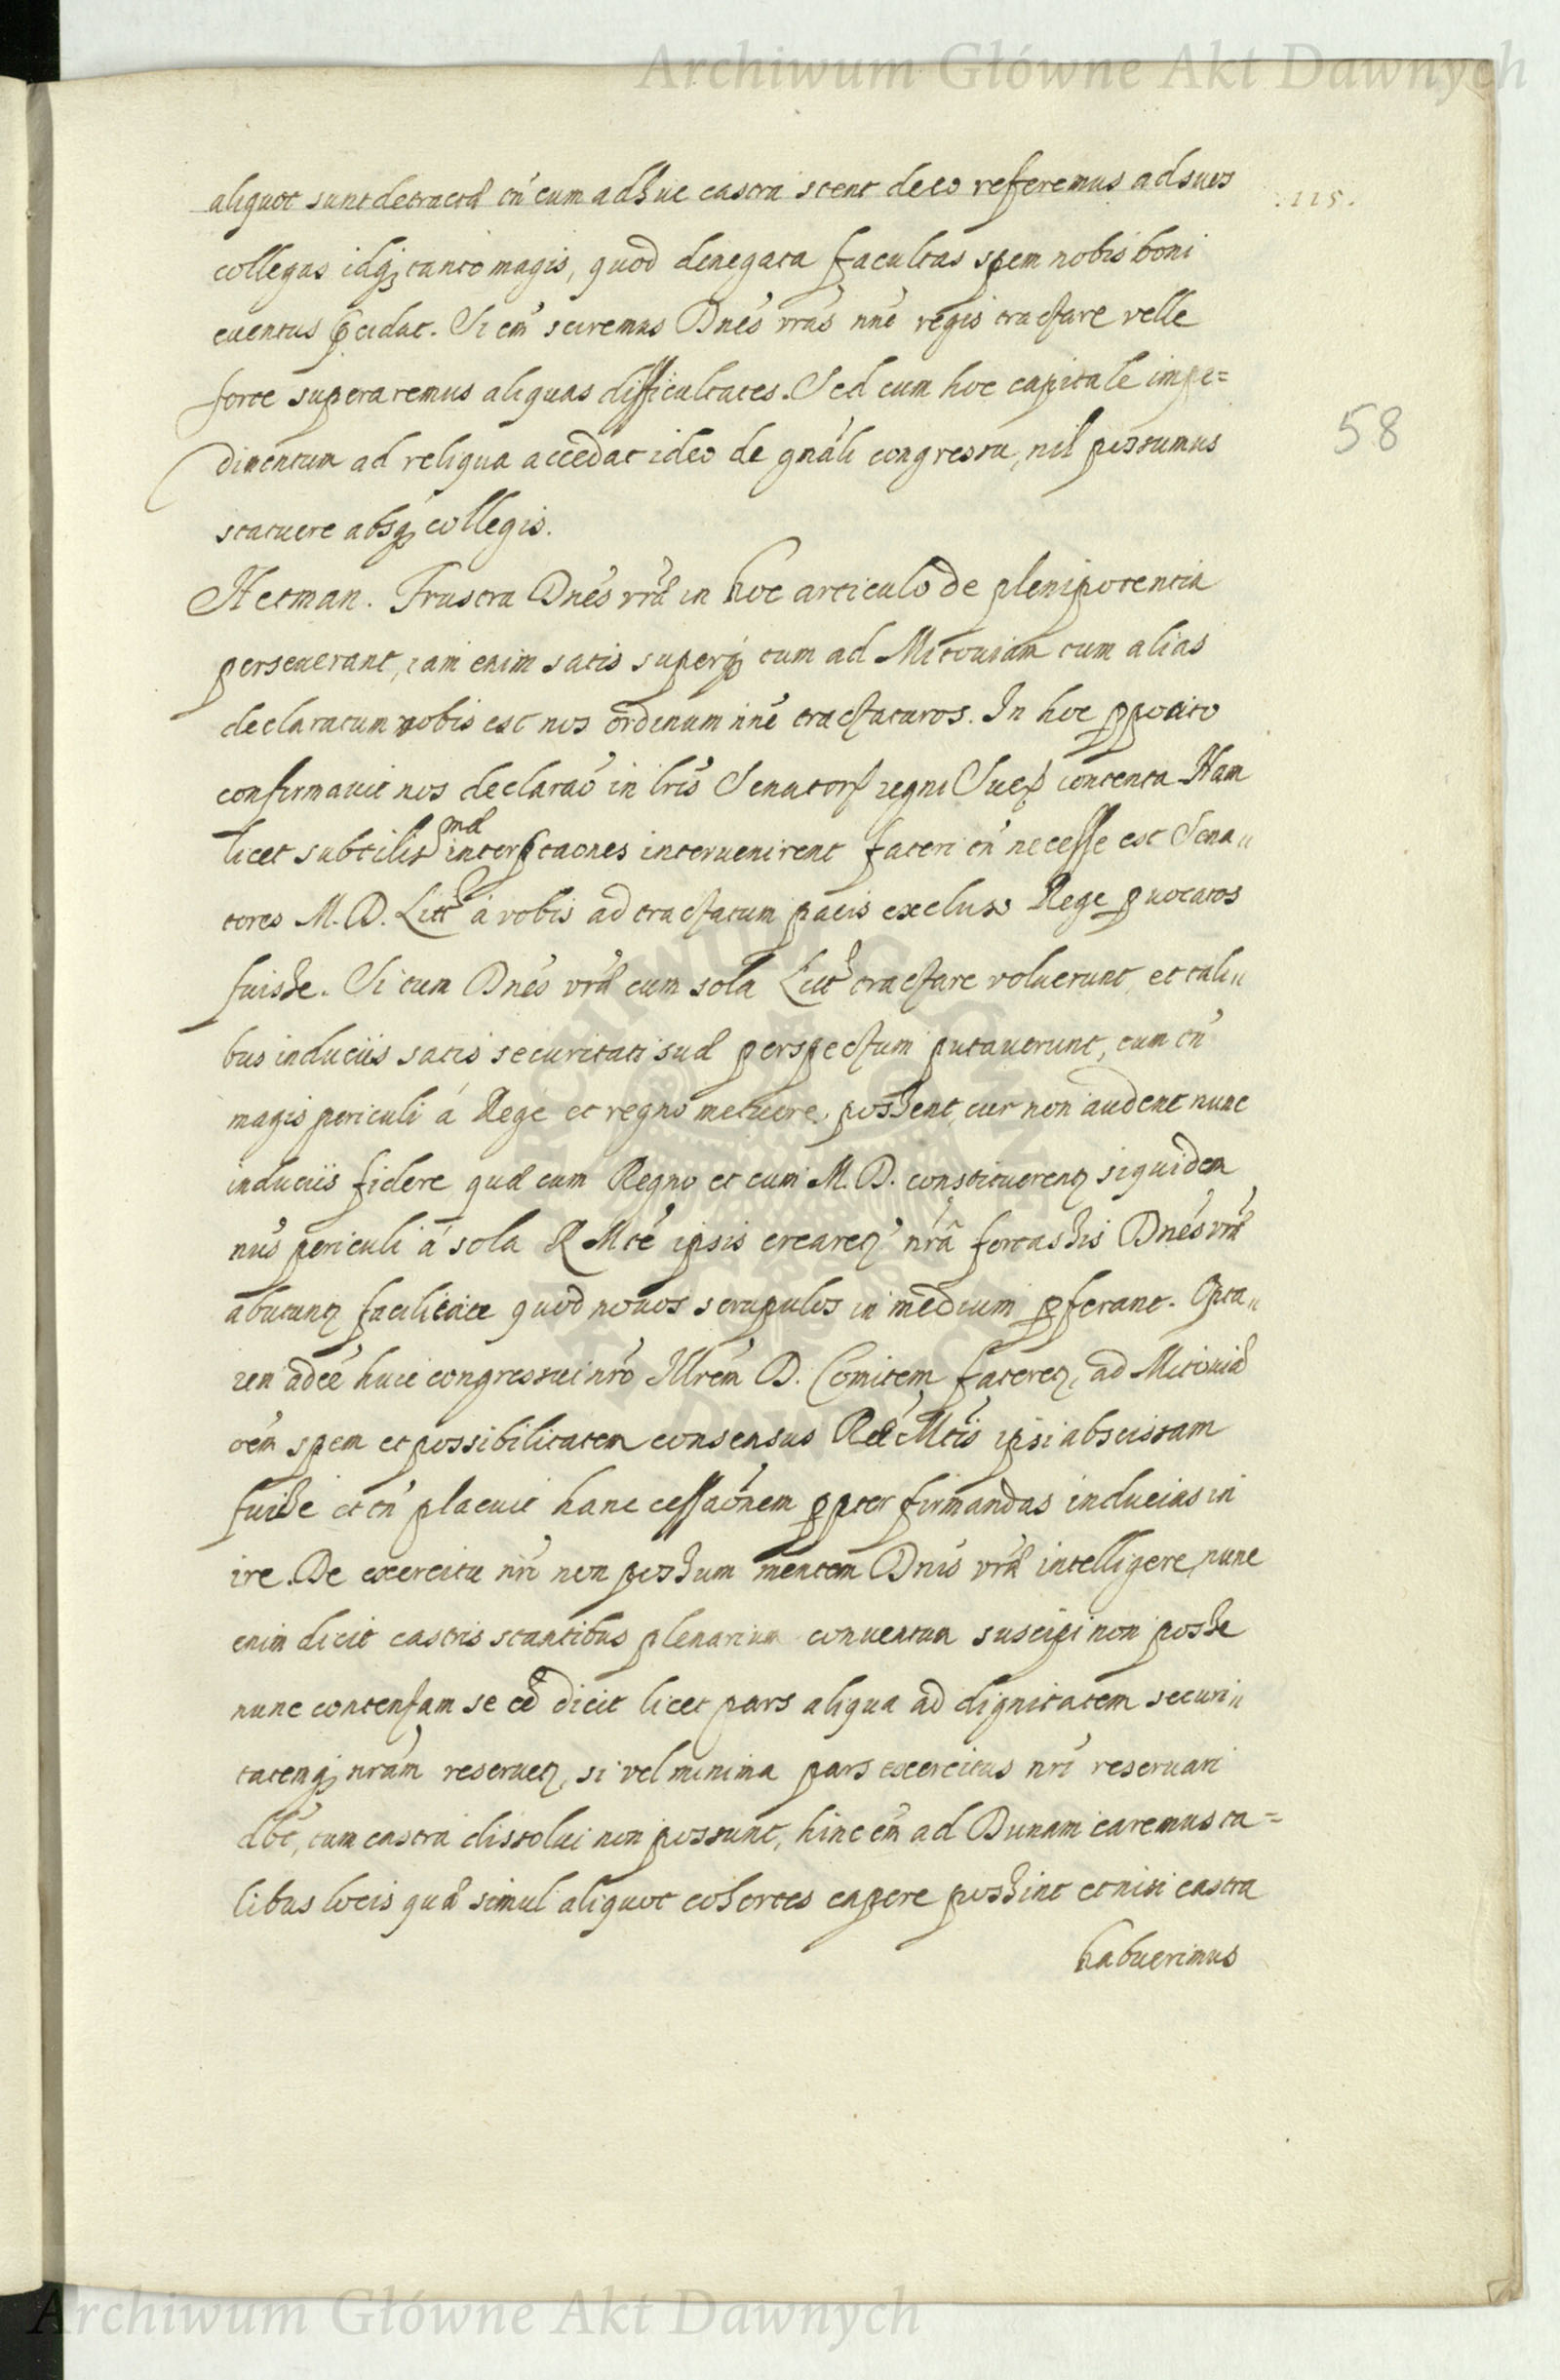 Archiwum Główne Akt Dawnych
aliquot sunt detractæ tñ cum adhuc castra stent de eo referemus ad suos
.115.
collegas idq; tanto magis, quod denegata facultas spem nobis boni
euentus p̃cidat. Si em̃ sciremus Dnẽs vrãs nñe regis tractare velle
forte superaremus aliquas difficultates. Sed cum hoc capitale impe=
58
dimentum ad reliqua accedat ideo de gnãli congressu, nil possumus
statuere absq; collegis.
Hetman. Frustra Dnẽs vrã in hoc articulo de plenipotentia
perseuerant, iam enim satis superq; tum ad Mitouiam tum alias
declaratum vobis est nos ordinum nñe tractaturos. In hoc ꝓposito
confirmauit nos declarãõ in lrĩs Senatorꝝ regni Sueꝝ contenta Nam
licet subtilissmæ interp̃tãones interuenirent fateri tñ necesse est Sena„
tores M. D. Litt à vobis ad tractatum pacis excluso Rege ꝓuocatos
fuisse. Si tum Dnẽs vrã cum sola Litt tractare voluerunt, et tali„
bus induciis satis securitati suæ perspectum putauerunt, cum tñ
magis periculi á Rege et regno metuere possent, cur non audent nunc
induciis fidere quæ cum Regno et cum M. D. constituerentꝫ siquidem
nũs periculi á sola R Mtẽ ipsis crearetꝫ nrã fortassis Dnẽs vrã
abutuntꝫ facilitate quod nouos scrupulos in medium ꝓferant. Opta„
rem adẽẽ huic congressui nrõ Illrẽm D. Comitem fateretꝫ, ad Mitouiã
oẽm spem et possibilitatem consensus Ræ Mtis ipsi abscissam
fuisse et tñ placuit hanc cessãõnem ꝓpter firmandas inducias in
ire. De exercitu nrĩ non possum mentem Dnĩs vrã intelligere, nunc
enim dicit castris stantibus plenarium conuentum suscipi non posse
nunc contentam se eẽ dicit licet pars aliqua ad dignitatem securi„
tatemq; nrãm reseruetꝫ, si vel minima pars exercitus nrĩ reseruari
dbẽt, tum castra dissolui non possunt, hinc em̃ ad Dunam caremus ta=
libus locis quæ simul aliquot cohortes capere possint et nisi castra
habuerimus
Archiwum Główne Akt Dawnych